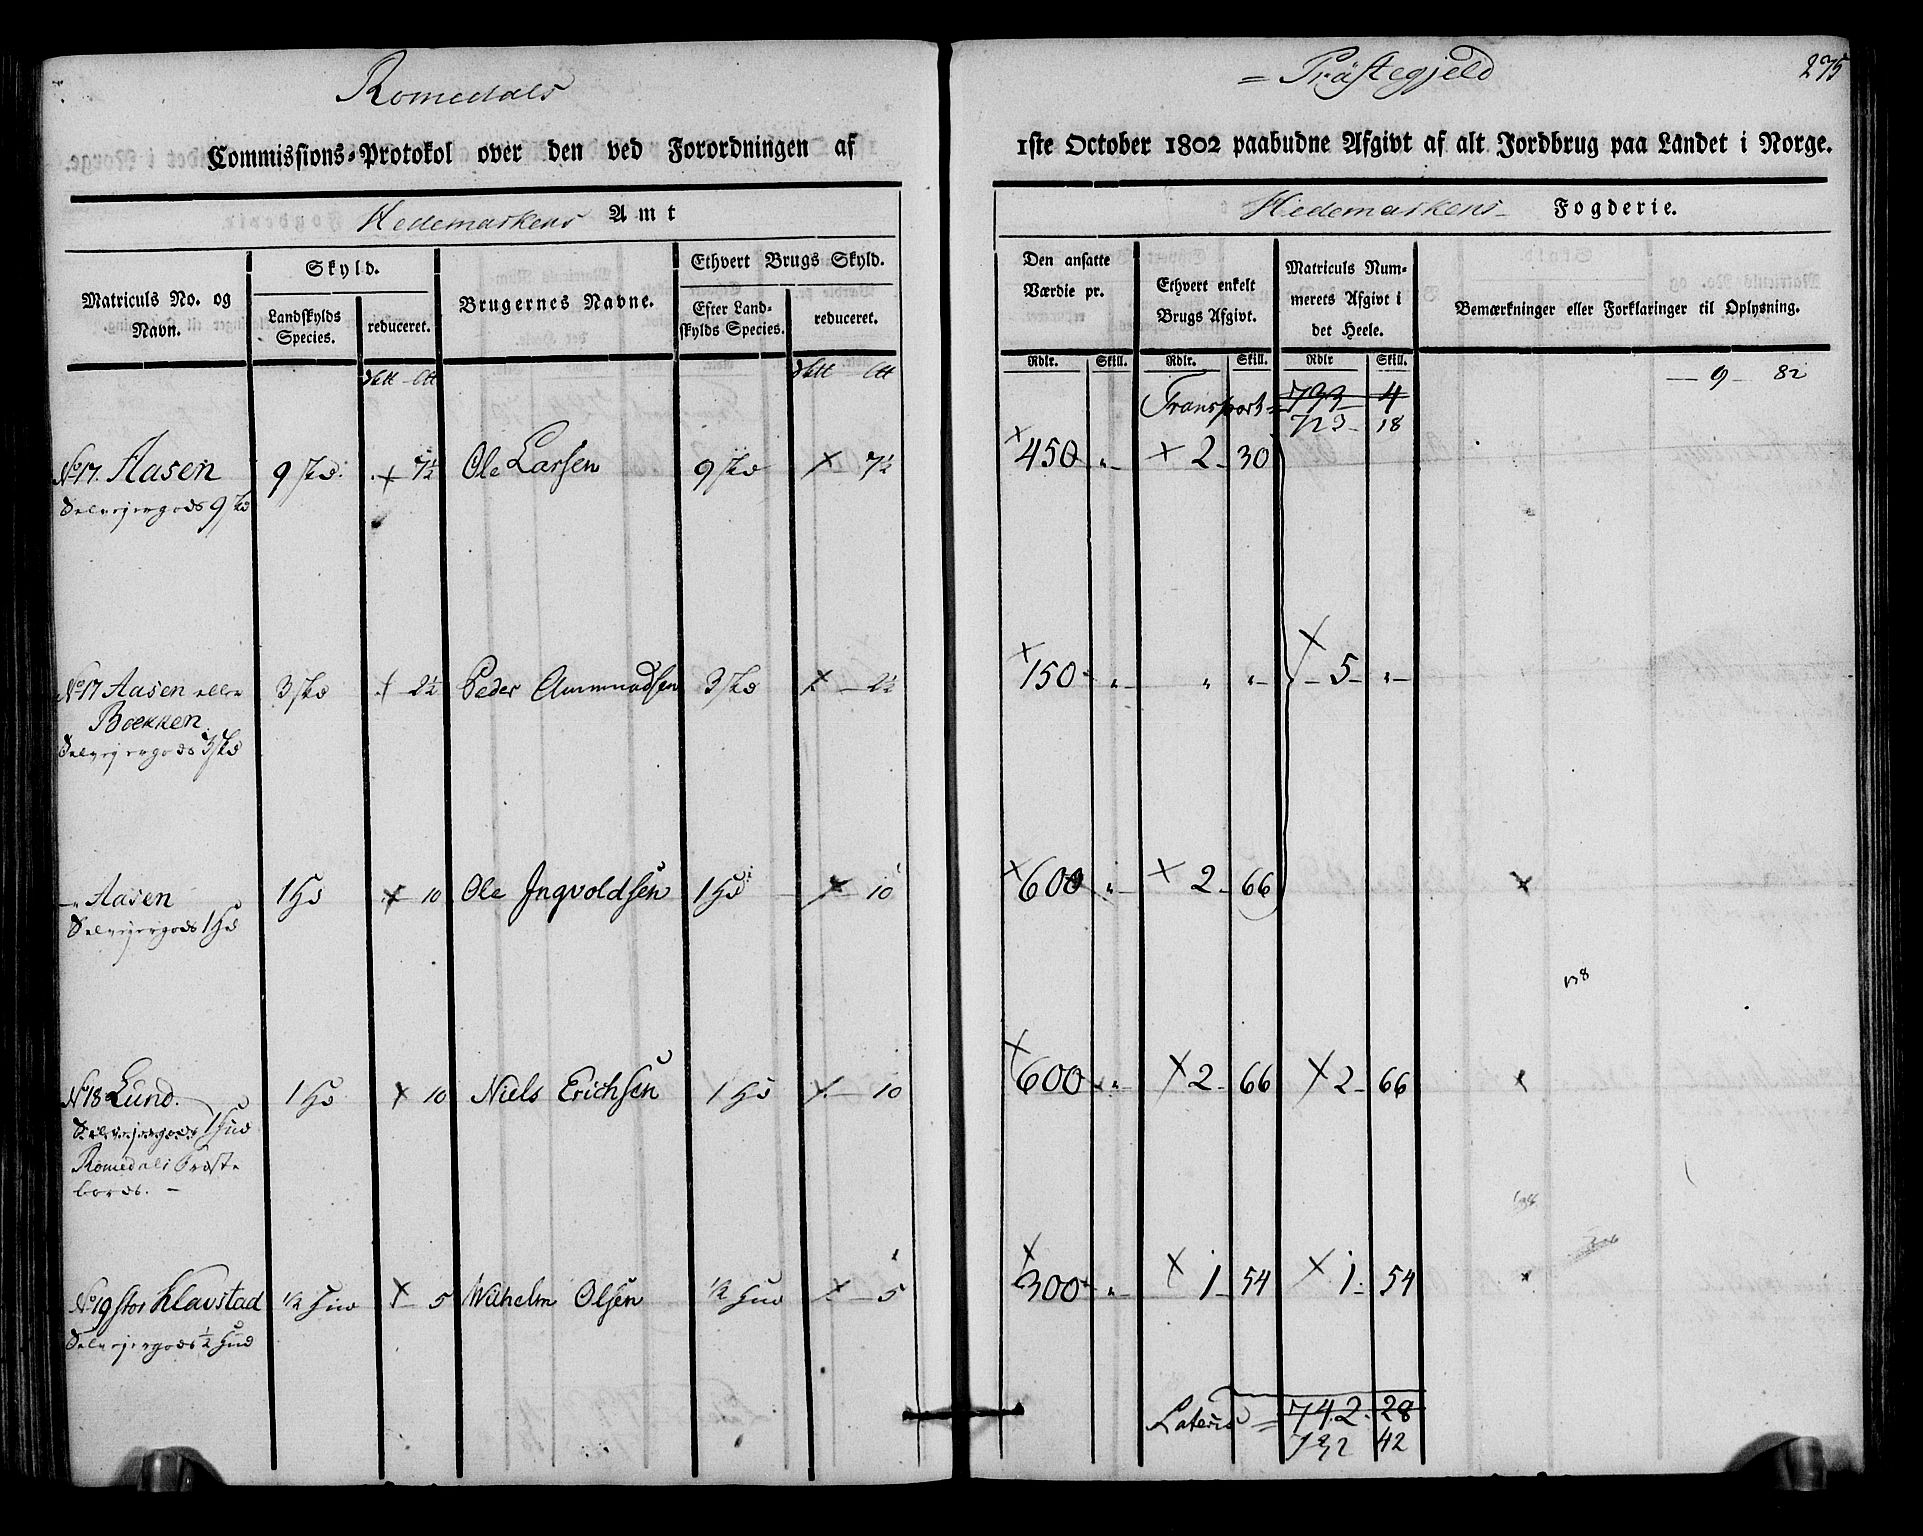 Romedals
= Præstegjeld
275
Commissions-Protokol over den ved Forordningen af
1ste October 1802 paabudne Afgivt af alt Jordbrug paa Landet i Norge.
Hedemarkens Amt
Hedemarkens Fogderie.
Matriculs No. og Navn.
Skyld.
Landskylds Species.
reduceret.
Brugernes Navne.
Ethvert Brugs Skyld.
Efter Landskylds Species.
reduceret.
Den ansatte Værdie pr.
Ethvert enkelt Brugs Afgivt.
Matriculs Nummerets Afgivt i det Heele.
Bemærkninger eller Forklaringer til Oplysning.
Rdlr. Skill. Rdlr. Skill. Rdlr Skill.
Transport = 733 4 — 9 — 82
723 - 18
No 17. Aasen 9 skd: + 7½ Ole Larsen 9 skd × 7½ × 450 „ - × 2 - 30
Selvejergods 9 skd
No 17 Aasen eller 3 skd × 2½ Peder Ammundsen 3 skd × - 2½ × 150 - „ - „ „ - × - 5 - „ -
Bækken
Selvejergods 3 skd
- „ Aasen 1 Hd × 10 Ole Ingvoldsen 1 Hd × 10 × 600 „ - × 2 - 66 ×
Selvejergods 1 Hd
No 18 Lund. 1 Hd × 10 Niels Erichsen 1 Hd × - 10 × 600 „ - × 2 - 66 × 2 - 66 ×
Selvejergods 1 Hud
Romedals Præste-
bord. -
No 19 stor Klavstad ½ Hud × - 5 Wilhelm Olsen ½ Hud × - 5 × 300 - „ - × 1 - 54 × 1 - 54 ×
Selvejergods ½ Hud
Lateris = 742 - 28
732 42